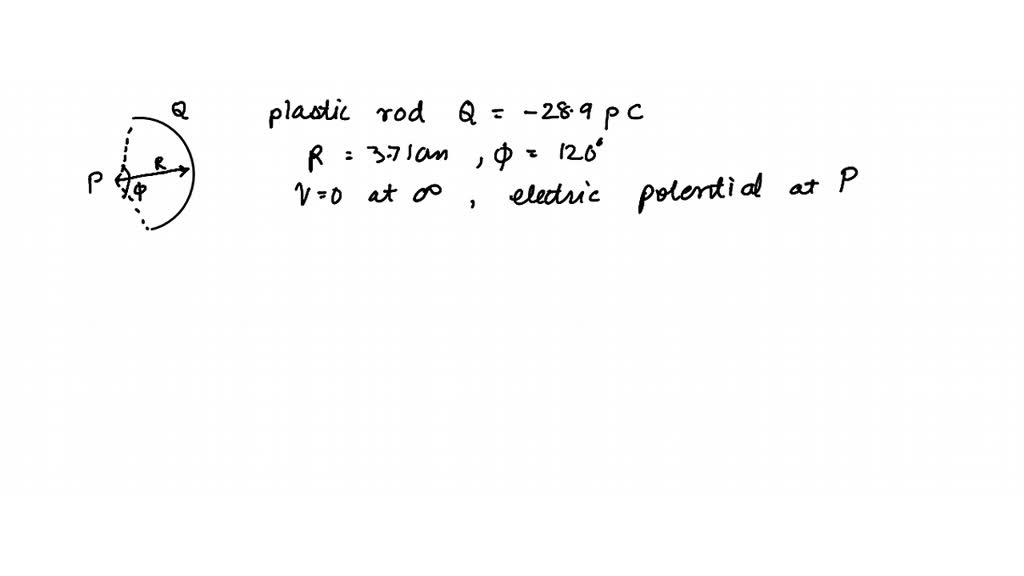 Q
R
P
φ
plastic rod Q = -28.9 pC
R = 3.71cm , φ = 120°
V=0 at ∞ , electric potential at P